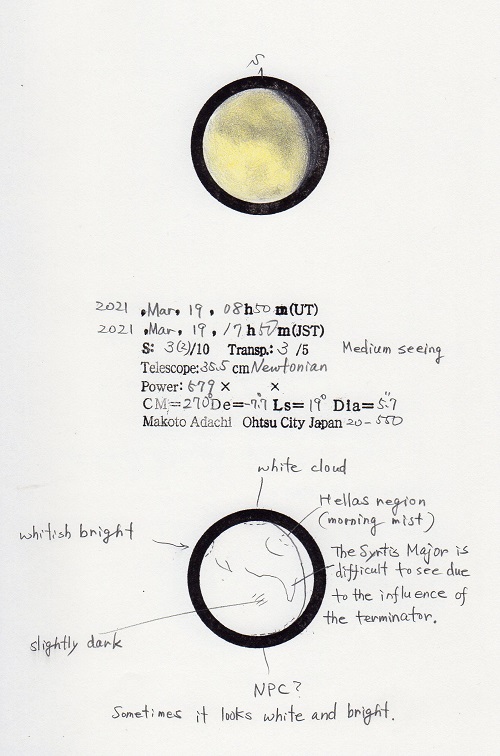 S
2021 , Mar, 19, 08h50m(UT)
2021 , Mar, 19, 17h50m(JST)
S: 3(2)/10 Transp.: 3 /5 Medium seeing
Telescope: 35.5 cm Newtonian
Power: 579 × ×
CM=270° De=-7.7° Ls=19° Dia=5.7"
Makoto Adachi Ohtsu City Japan 20-550
white cloud
Hellas region
(morning mist)
whitish bright
The Syrtis Major is
difficult to see due
to the influence of
the terminator.
slightly dark
NPC?
Sometimes it looks white and bright.